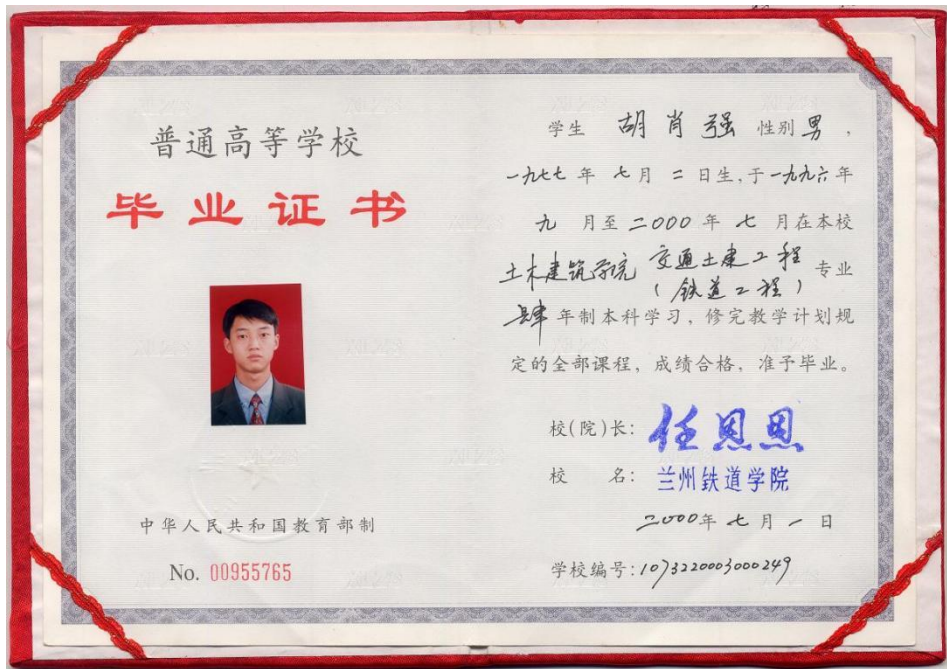 普通高等学校
毕业证书
中华人民共和国教育部制
No. 00955765
学生 胡肖强 性别 男，
一九七七年 七月 二日生,于一九九六年
九 月至二000年 七 月在本校
土木建筑学院 交通土建工程
（铁道工程） 专业
肆 年制本科学习，修完教学计划规
定的全部课程，成绩合格，准予毕业。
校(院)长: 任恩恩
校 名: 兰州铁道学院
二000年 七 月 一 日
学校编号:1073220003000249